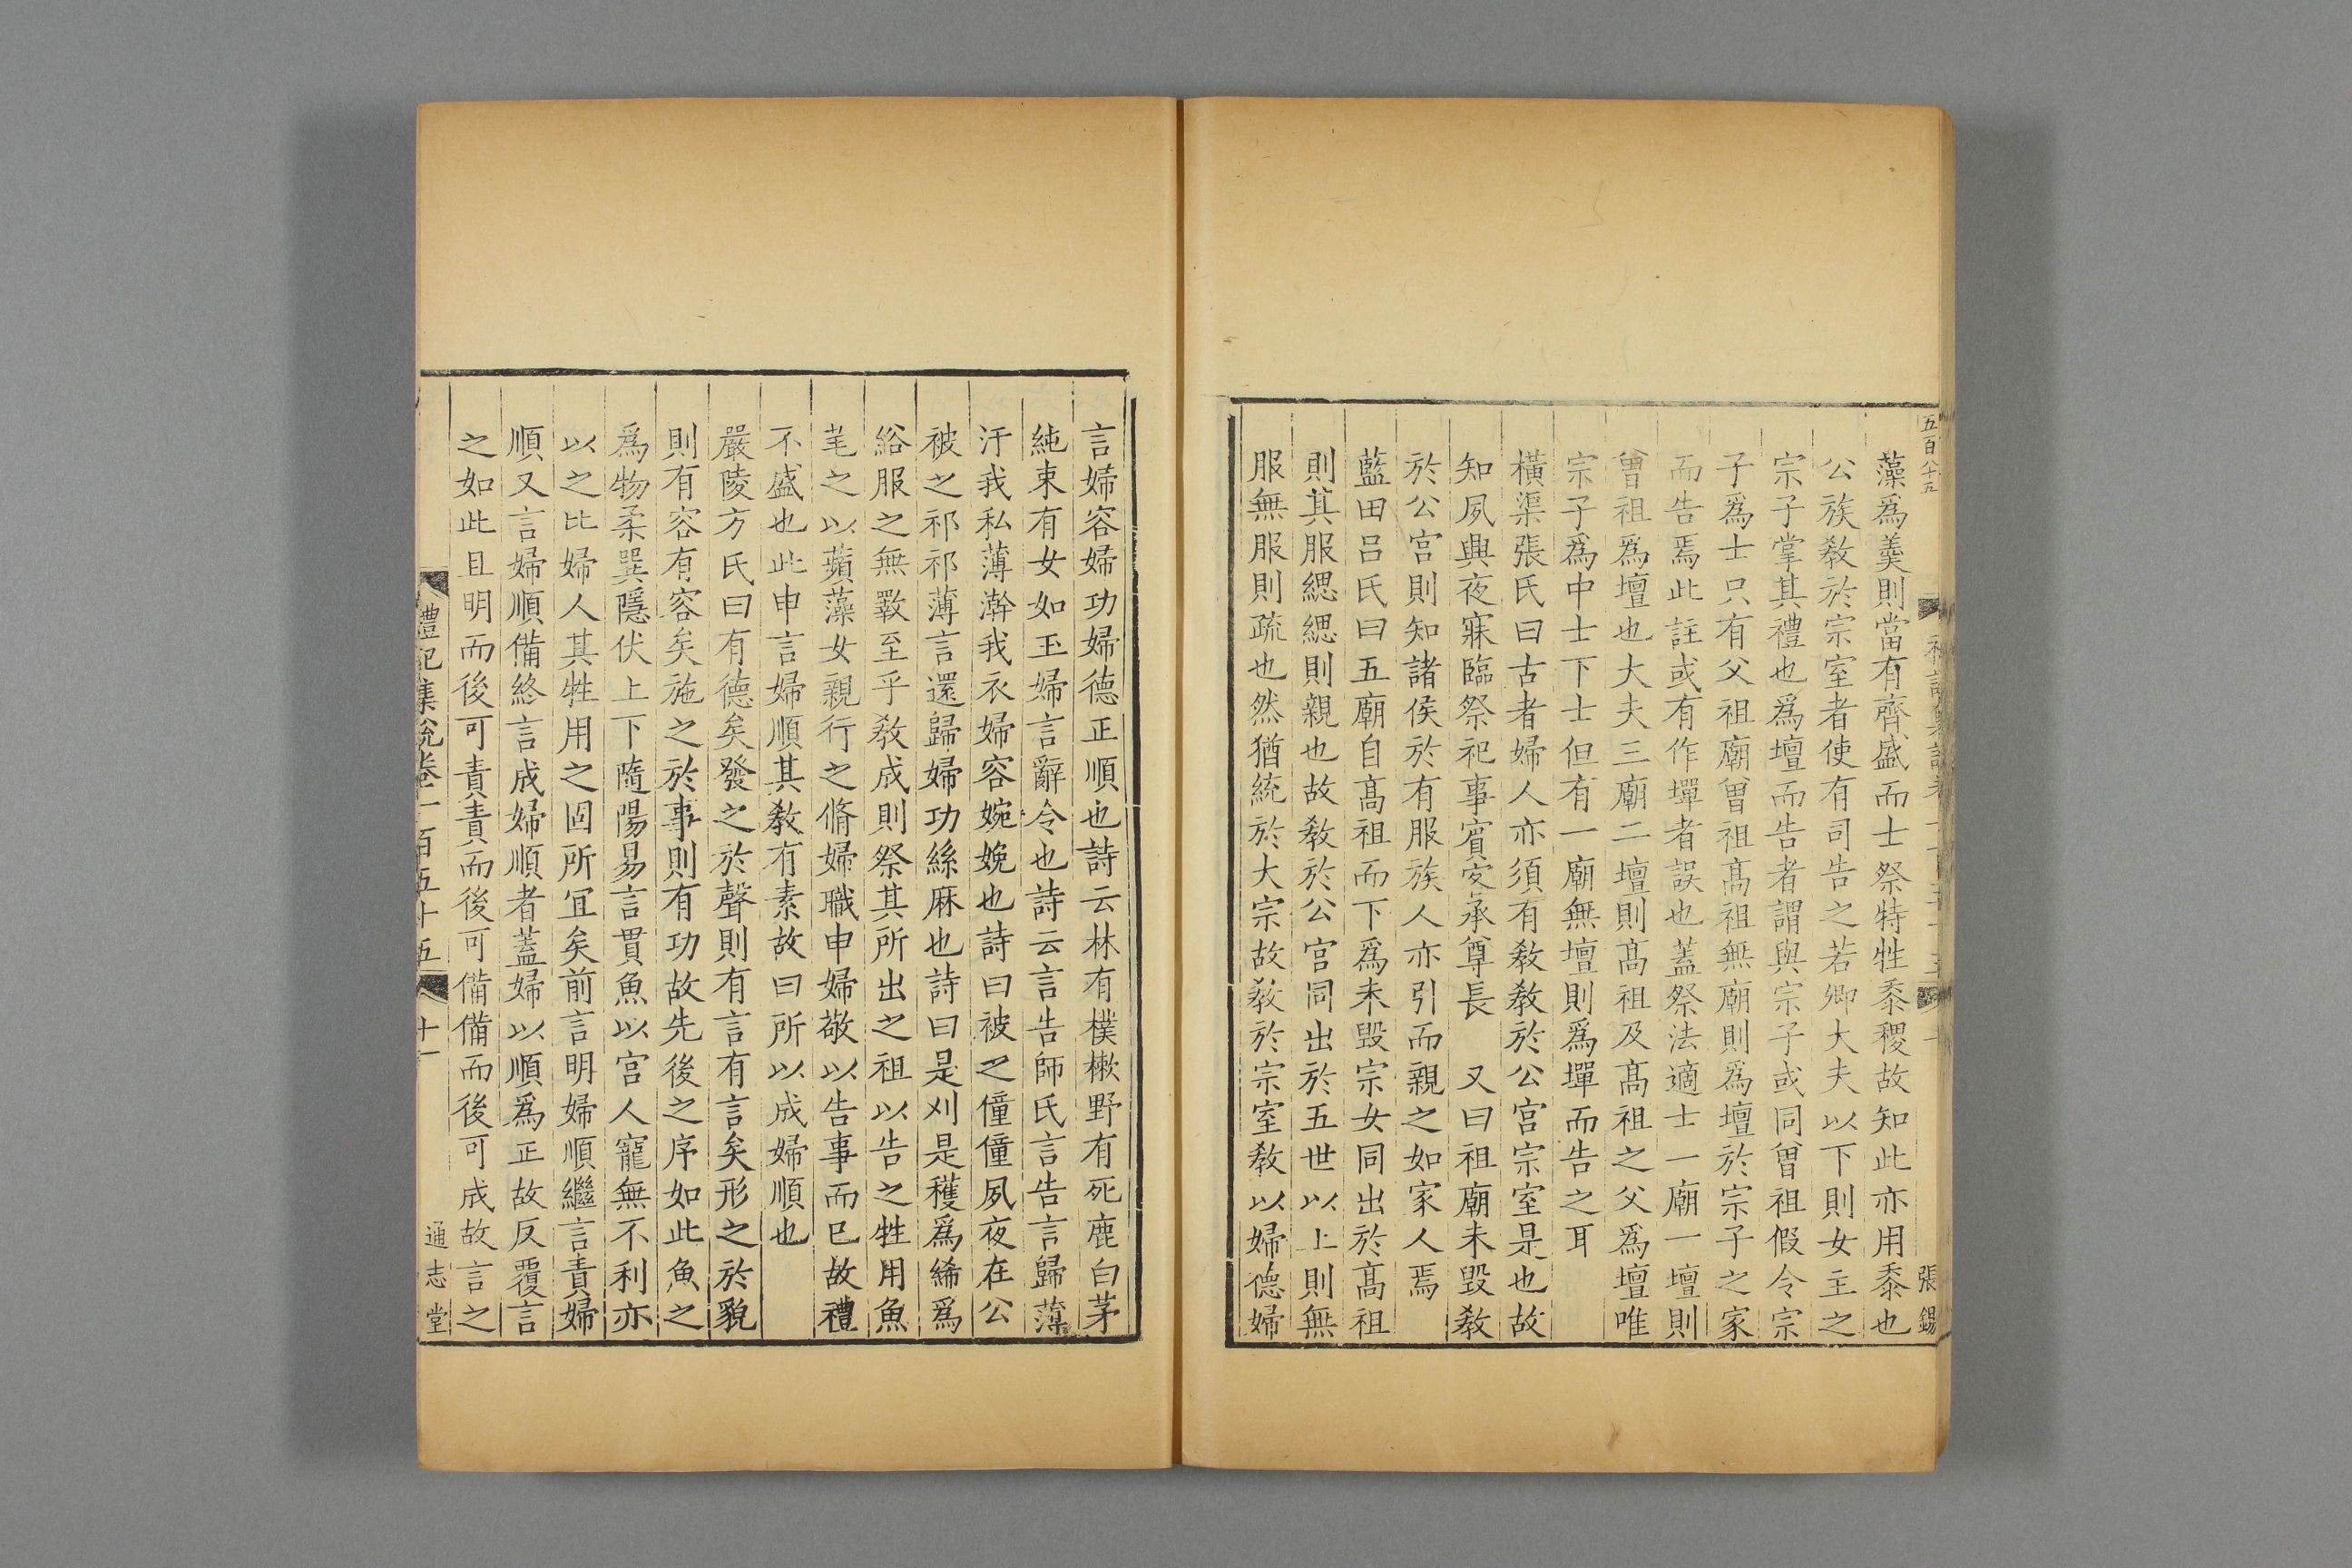 五百八十五
張錫
藻爲羹則當有齊盛而士祭特牲黍稷故知此亦用黍也
公族教於宗室者使有司告之若卿大夫以下則女主之
宗子掌其禮也爲壇而告者謂與宗子或同曾祖假令宗
子爲士只有父祖廟曾祖髙祖無廟則爲壇於宗子之家
而告焉此註或有作墠者誤也蓋祭法適士一廟一壇則
曾祖爲壇也大夫三廟二壇則髙祖及髙祖之父爲壇唯
宗子爲中士下士但有一廟無壇則爲墠而告之耳
橫渠張氏曰古者婦人亦須有教教於公宮宗室是也故
知夙興夜寐臨祭祀事賓安承尊長　又曰祖廟未毀教
於公宮則知諸侯於有服族人亦引而親之如家人焉
藍田呂氏曰五廟自髙祖而下爲未毀宗女同出於髙祖
則其服緦緦則親也故教於公宮同出於五世以上則無
服無服則疏也然猶統於大宗故教於宗室教以婦德婦
言婦容婦功婦德正順也詩云林有樸樕野有死鹿白茅
純束有女如玉婦言辭令也詩云言告師氏言告言歸薄
汙我私薄澣我衣婦容婉娩也詩曰被之僮僮夙夜在公
被之祁祁薄言還歸婦功絲麻也詩曰是刈是穫爲絺爲
綌服之無斁至乎教成則祭其所出之祖以告之牲用魚
芼之以蘋藻女親行之脩婦職申婦敬以告事而已故禮
不盛也此申言婦順其教有素故曰所以成婦順也
嚴陵方氏曰有德矣發之於聲則有言有言矣形之於貌
則有容有容矣施之於事則有功故先後之序如此魚之
爲物柔巽隱伏上下隨陽易言貫魚以宮人寵無不利亦
以之比婦人其牲用之固所宜矣前言明婦順繼言責婦
順又言婦順備終言成婦順者蓋婦以順爲正故反覆言
之如此且明而後可責責而後可備備而後可成故言之
禮記集說卷一百五十五
十一
通志堂